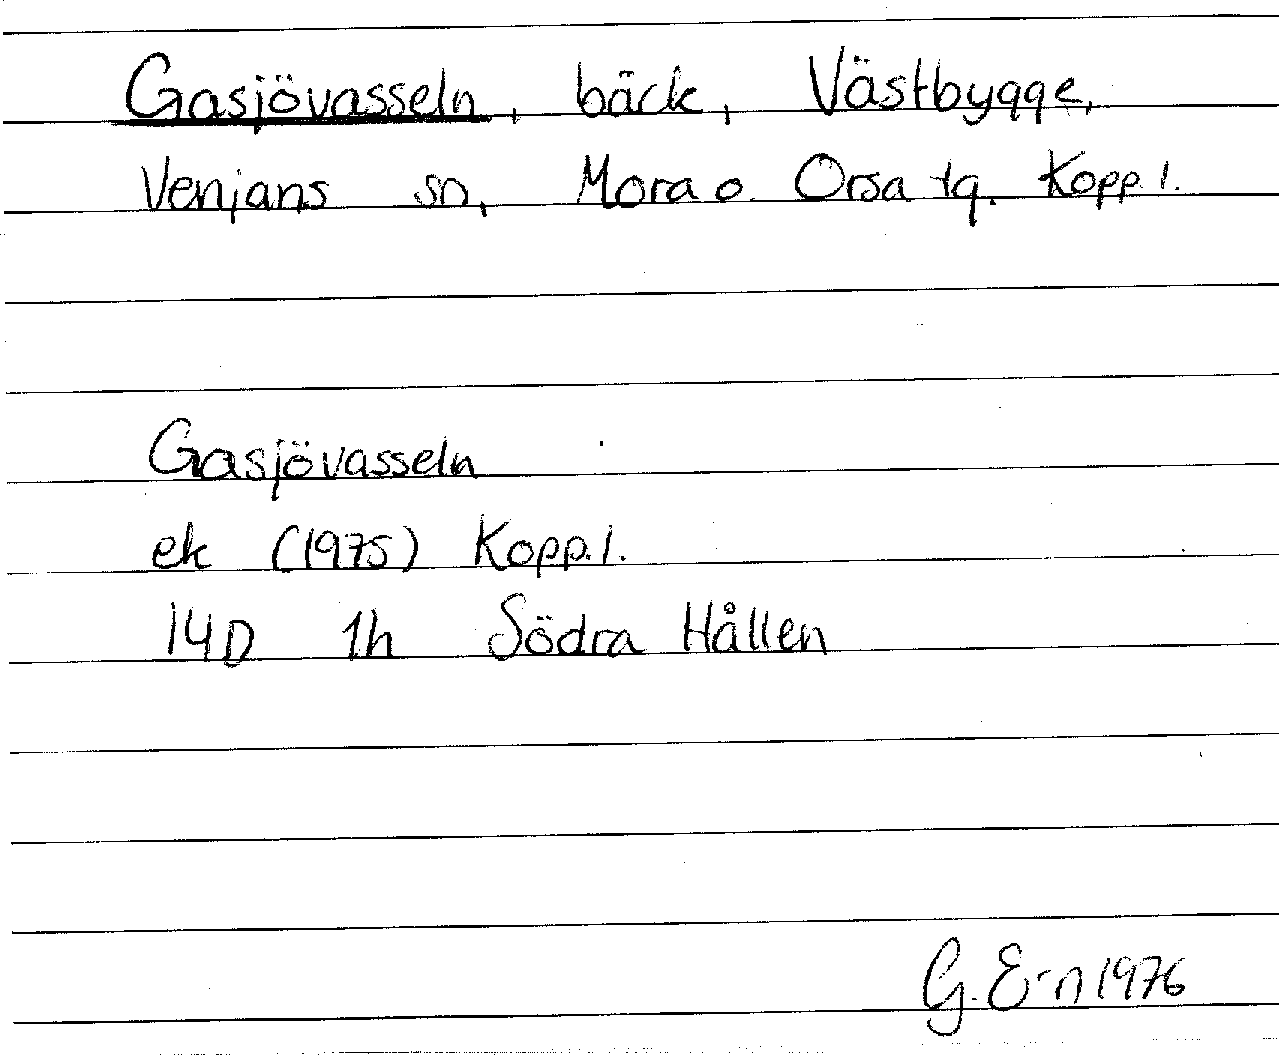 Gasjövasseln, bäck, Västbygge,
Venjans sn, Mora o. Orsa tg. Kopp.l.
Gasjövasseln
ek (1975) Kopp.l.
14D 1h Södra Hållen
G. E-n 1976